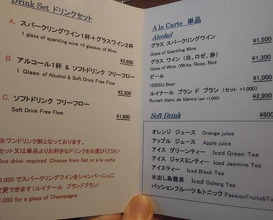 Drink Set ドリンクセット
A. スパークリングワイン1杯+グラスワイン2杯
1 glass of sparkling wine +2 glasses of Wine
¥3,800
B. アルコール1杯 & ソフトドリンク フリーフロー
1 Glass of Alcohol & Soft Drink Free Flow
¥3,300
C. ソフトドリンク フリーフロー
Soft Drink Free Flow
¥1,800
※ワンドリンク制となっております。
セット又は単品よりお好きなドリンクをお選びください
One drink required. Choose from Set or a la carte
¥1,000 でスパークリングワインをシャンパーニュに
変更できます(ルイナール ブラン ド ブラン)
¥1,000 for a glass of Champagne
A la Carte 単品
Alcohol
グラス スパークリングワイン
Glass of Sparkling Wine
グラス ワイン (白、ロゼ、赤)
Glass of Wine (White, Rose, Red)
ビール
YEBISU Beer
ルイナール ブラン ド ブラン (セット +1,000)
Ruinart blanc de blancs (set +1,000)
¥2,900
Soft Drink
¥800
オレンジ ジュース Orange juice
アップル ジュース Apple juice
アイス グリーンティー Iced Green Tea
アイス ジャスミンティー Iced Jasmine Tea
アイスティー Iced Black Tea
水出し烏龍茶 Iced Oolong Tea
パッションフルーツ&トニック PassionFruits&